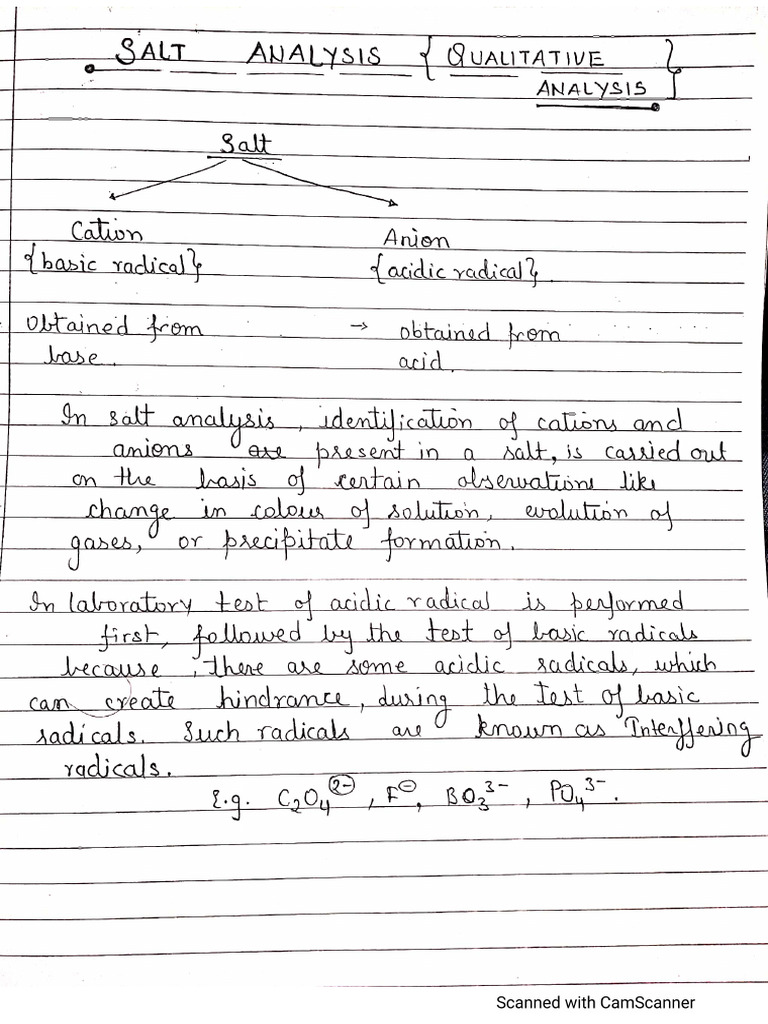 SALT ANALYSIS { QUALITATIVE
ANALYSIS }
Salt
Cation Anion
{basic radical} {acidic radical}.
Obtained from → obtained from
base. acid.
In salt analysis, identification of cations and
anions are present in a salt, is carried out
on the basis of certain observations like
change in colour of solution, evolution of
gases, or precipitate formation.
In laboratory test of acidic radical is performed
first, followed by the test of basic radicals
because, there are some acidic radicals, which
can create hindrance, during the test of basic
radicals. Such radicals are known as Interffering
radicals.
E.g. C₂O₄²⁻, F⁻, BO₃³⁻, PO₄³⁻.
Scanned with CamScanner